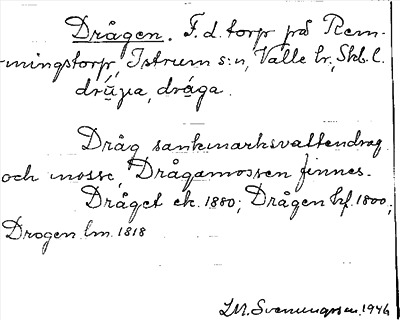 Drågen. F. d. torp på Rem-
mningstorp, Istrum s:n, Valle hr, Skb. l.
drúʒa, dråga.
Dråg sankmarksvattendrag
och mosse, Drågamossen finnes.
Dråget ek. 1880; Drågen hf. 1800;
Drogen lm. 1818
I.M. Svenungsson. 1946